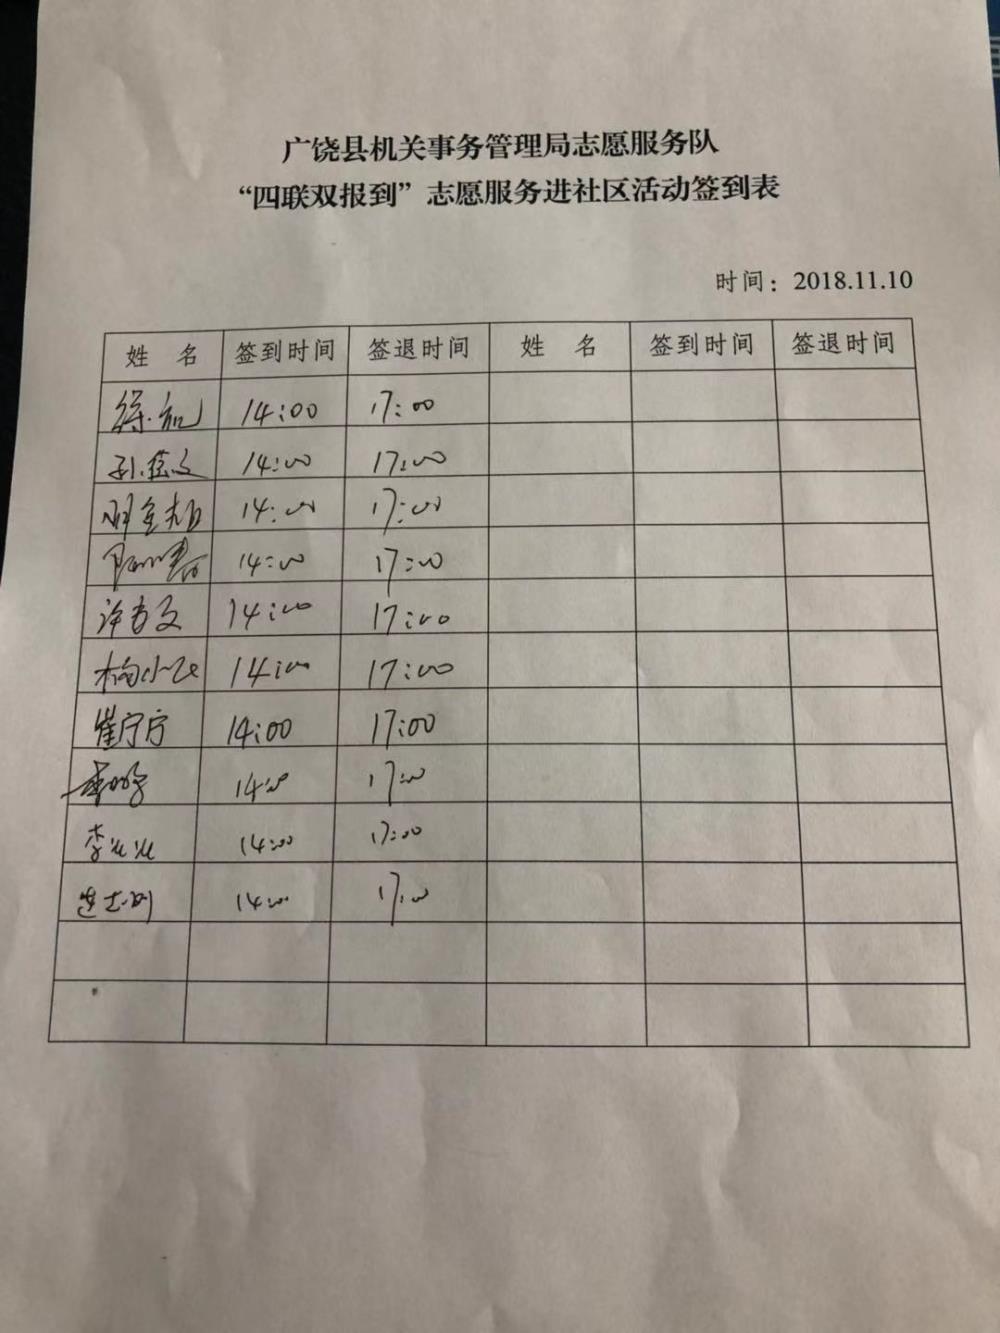 广饶县机关事务管理局志愿服务队
“四联双报到”志愿服务进社区活动签到表
时间：2018.11.10
姓 名 签到时间 签退时间 姓 名 签到时间 签退时间
14:00 17:00
14:00 17:00
14:00 17:00
14:00 17:00
14:00 17:00
14:00 17:00
崔宁宁 14:00 17:00
14:00 17:00
李 14:00 17:00
14:00 17:00